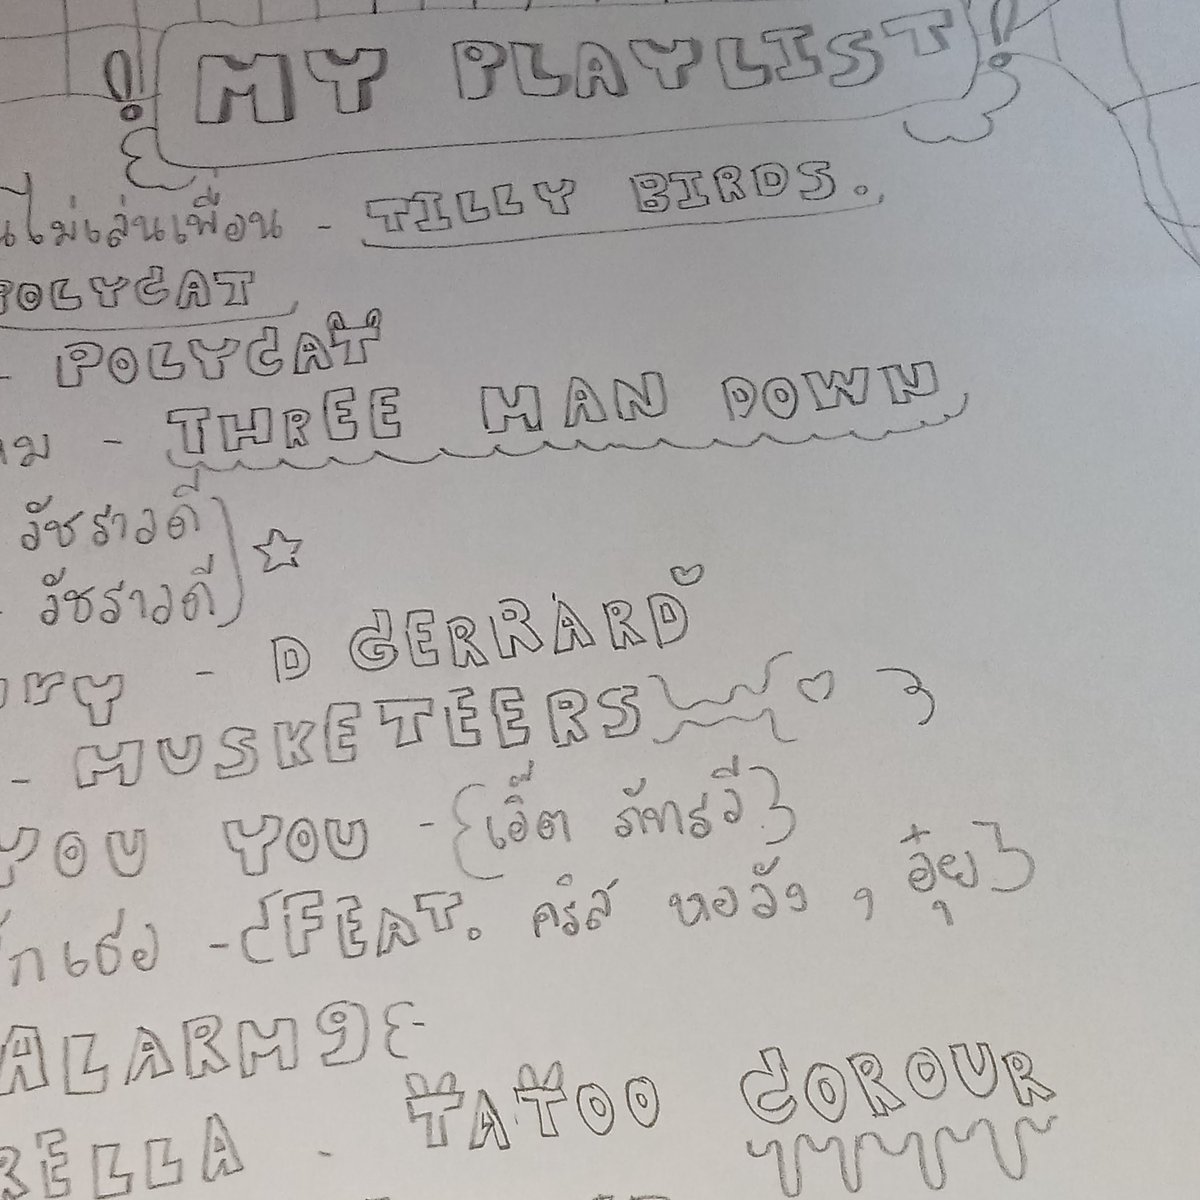 MY PLAYLIST
นไม่เล่นเพื่อน - TILLY BIRDS.
POLYCAT
- POLYCAT
าม - THREE MAN DOWN
วัชราวลี
- วัชราวลี
ory - D GERRARD
- MUSKETEERS
YOU YOU - {เอิ๊ต ภัทรวี}
กเธอ - {FEAT. คริส หอวัง , อุ๋ย}
ALARM9
RELLA - TATOO COROUR